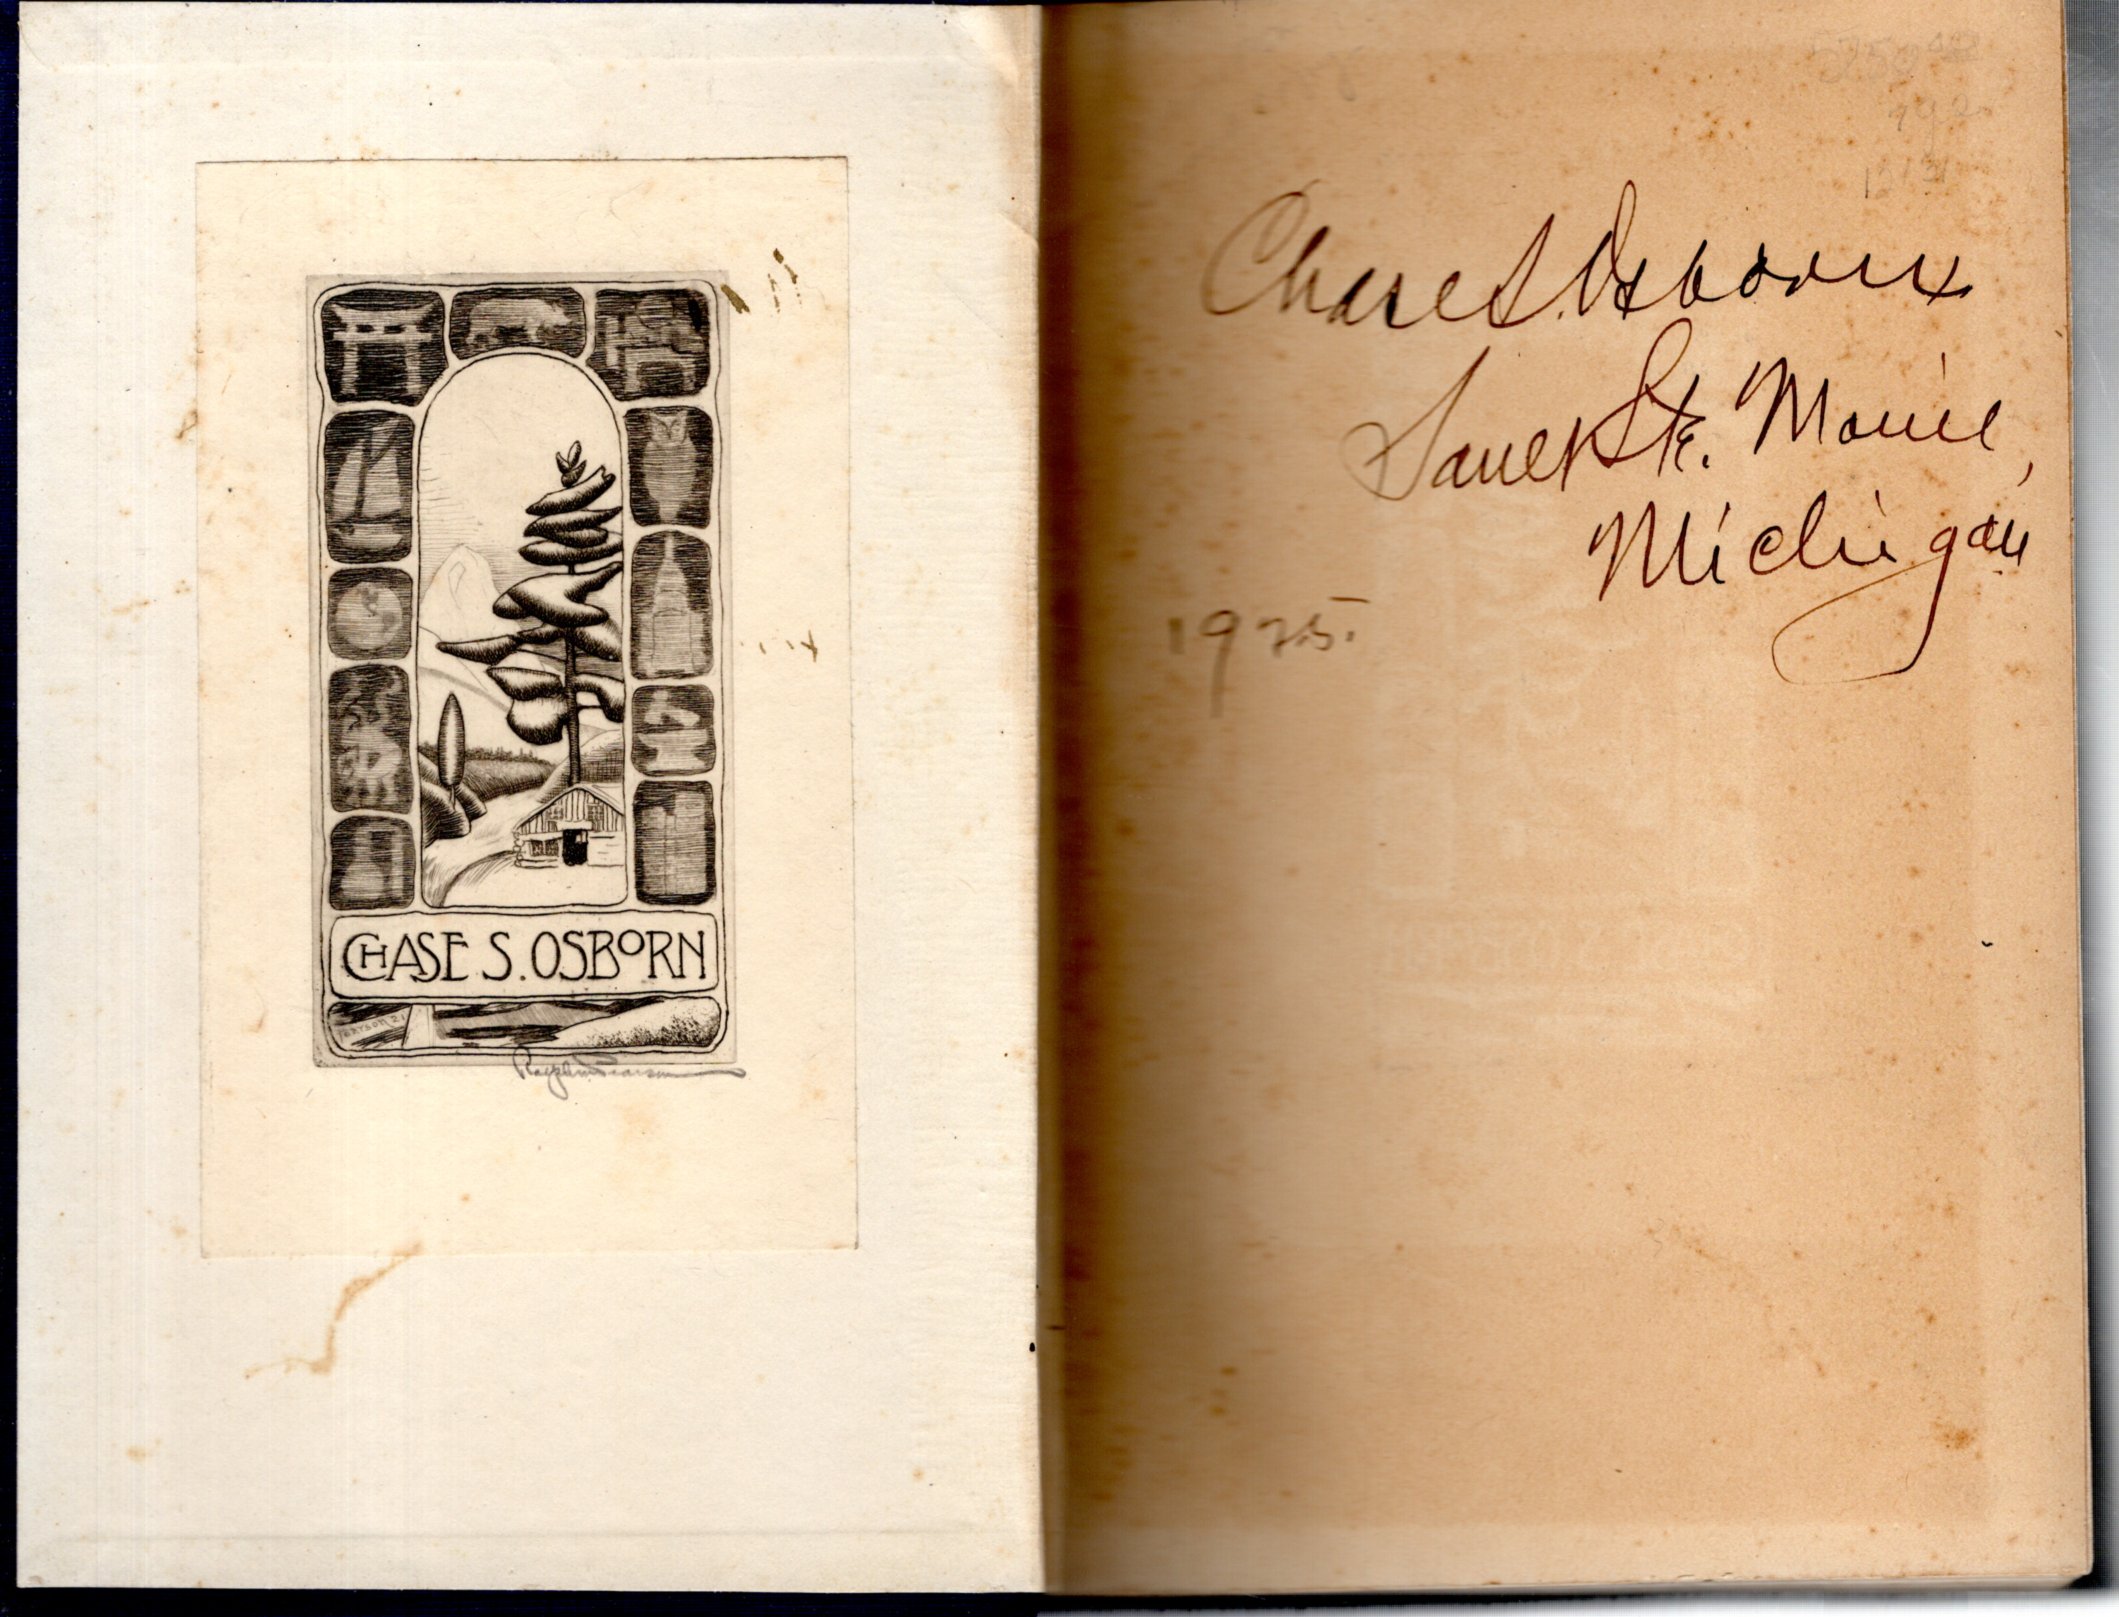 CHASE S. OSBORN
Pearson 21
Ralph M Pearson
Chase S. Osborn
Sault Ste. Marie,
Michigan
1925.